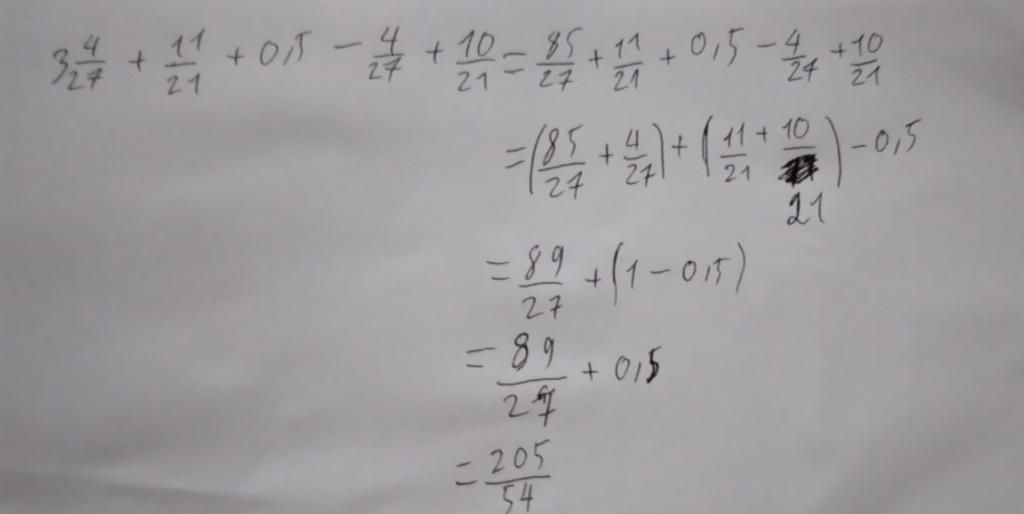 3 4/27 + 11/21 + 0,5 - 4/27 + 10/21 = 85/27 + 11/21 + 0,5 - 4/27 + 10/21
= (85/27 + 4/27) + (11/21 + 10/21) - 0,5
= 89/27 + (1 - 0,5)
= 89/27 + 0,5
= 205/54